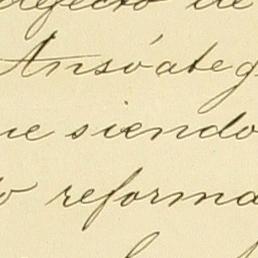 defecto de
Ansóateg
ue siendo
o reforma